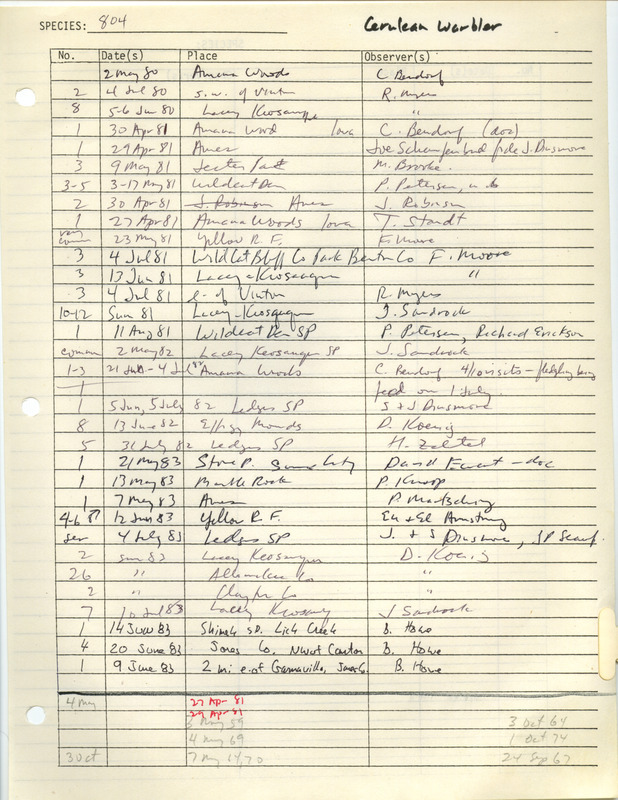 SPECIES: 804 Cerulean Warbler
No. Date(s) Place Observer(s)
2 May 80 Amana Woods C. Bendorf
2 4 Jul 80 s.w. of Vinton R. Myers
8 5-6 Jun 80 Lacey Keosauqua "
1 30 Apr 81 Amana Wood Iowa C. Bendorf (doc)
1 29 Apr 81 Ames fide J. Dinsmore
3 9 May 81 M. Brooke
3-5 3-17 May 81 Wildcat Den P. Petersen,
2 30 Apr 81 J. Robinson Ames J. Robinson
1 27 Apr 81 Amana Woods Iowa T. Staudt
very common 23 May 81 Yellow R. F. F. Moore
3 4 Jul 81 Wild Cat Bluff Co Park Benton Co F. Moore
3 13 Jun 81 Lacey-Keosauqua "
3 4 Jul 81 e. of Vinton R. Myers
10-12 Jun 81 Lacey-Keosauqua J. Sandrock
1 11 Aug 81 Wildcat Den SP P. Petersen, Richard Erickson
common 2 May 82 Lacey Keosauqua SP J. Sandrock
1-3 4 Jul 82 Amana Woods C. Bendorf 4/10 visits - fledgling being
feed on 1 July
1 5 Jun, 5 July 82 Ledges SP S + J Dinsmore
8 13 June 82 Effigy Mounds D. Koenig
5 31 July 82 Ledges SP H. Zaletel
1 21 May 83 Stone P. Sioux City Darrell Ewert - doc
1 13 May 83 Marble Rock P. Knapp
1 7 May 83 Ames P. Martsching
4-6 12 Jun 83 Yellow R. F. Eu + El Armstrong
sev 4 July 83 Ledges SP J. + S Dinsmore,
2 Jun 83 Lacey Keosauqua D. Koenig
26 " Allamakee Co "
2 " Clayton Co "
7 10 Jul 83 Lacey Keosauq J Sandrock
1 14 Jun 83 Shimek SP. Lick Creek B. Howe
4 20 June 83 Jones Co. NW of Canton B. Howe
1 9 June 83 2 mi e. of Garnavillo, B. Howe
4 May 27 Apr 81
29 Apr 81
May 59 3 Oct 64
4 May 69 1 Oct 74
3 Oct 7 May 14,70 24 Sep 67